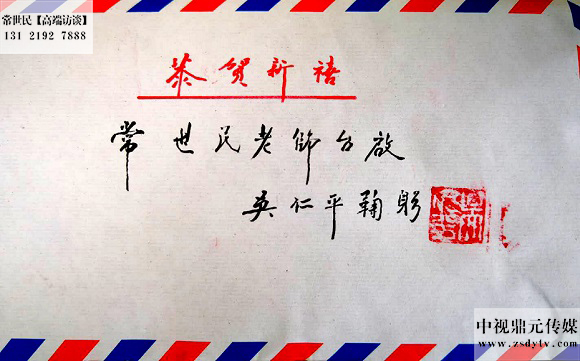 常世民【高端访谈】
131 2192 7888
恭贺新禧
常世民老师台启
吴仁平鞠躬
中视鼎元传媒
www.zsdytv.com